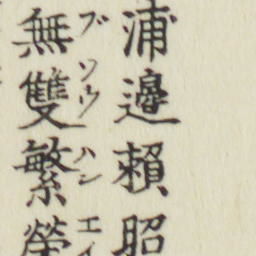 浦邉賴昭
無雙繁榮
ブソウハンエイ